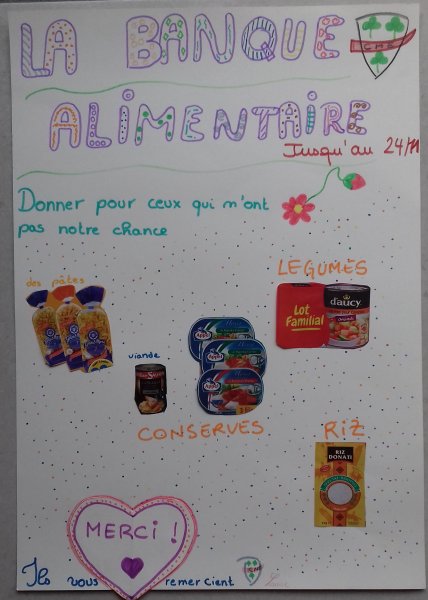 LA BANQUE
ALIMENTAIRE
Jusqu'au 24/11
Donner pour ceux qui n'ont
pas notre chance
LEGUMES
des pâtes
Lot
Familial
d'aucy
viande
CONSERVES
RIZ
RIZ
DONATI
MERCI !
Ils vous remercient